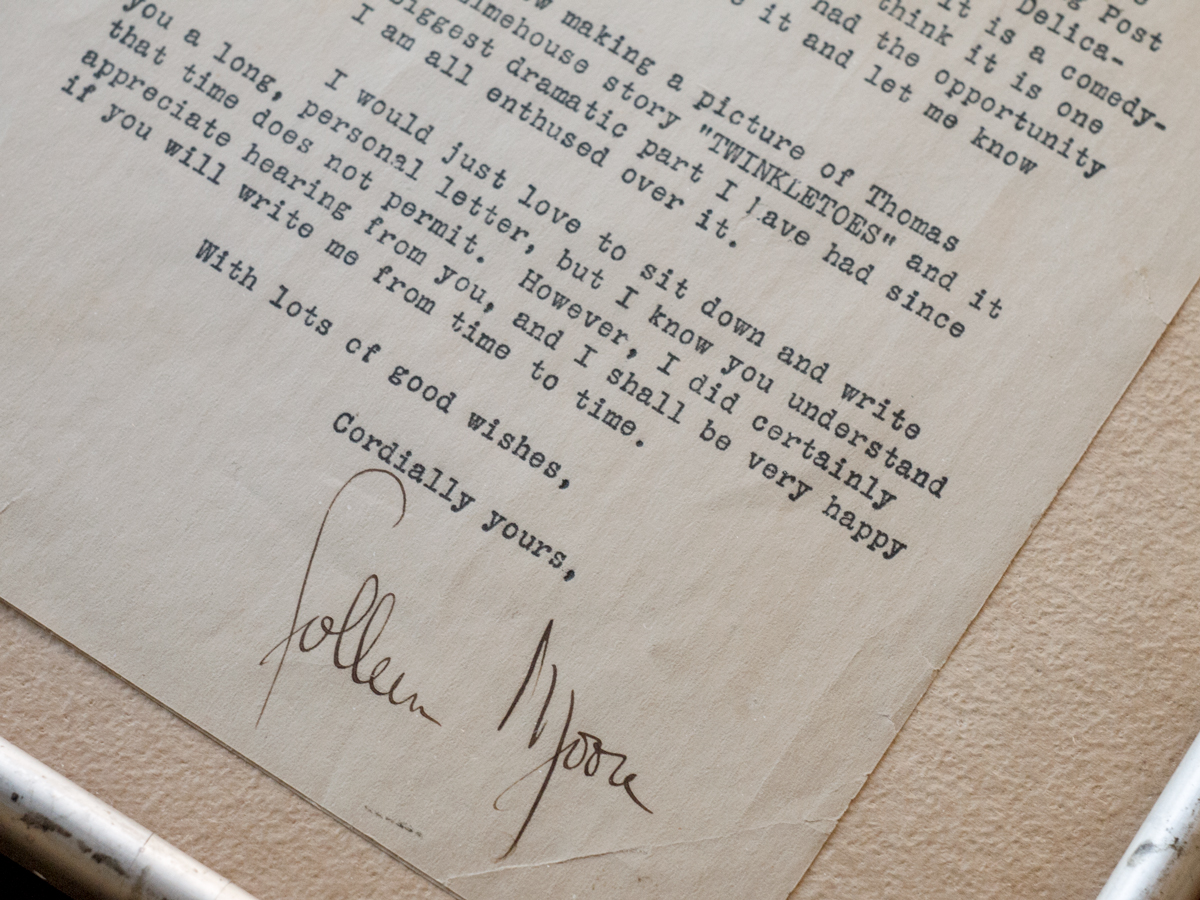 Post
Delica-
it is a comedy-
think it is one
had the opportunity
it and let me know
making a picture of Thomas
story "TWINKLETOES" and it
biggest dramatic part I have had since
I am all enthused over it.
I would just love to sit down and write
you a long, personal letter, but I know you understand
that time does not permit. However, I did certainly
appreciate hearing from you, and I shall be very happy
if you will write me from time to time.
With lots of good wishes,
Cordially yours,
Colleen Moore